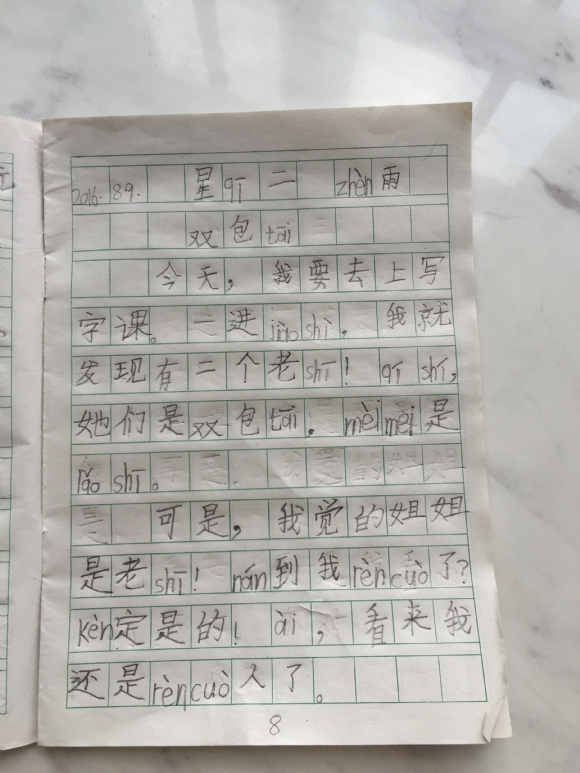 2016.8.9. 星qī二 zhèn雨
双包tāi
今天，我要去上写
字课。一进jiào shì，我就
发现有二个老shī！qī shí，
她们是双包tāi，mèi mèi是
lǎo shī。
可是，我觉的姐姐
是老shī！nán到我rèn cuò了？
kěn定是的！ài，看来我
还是rèn cuò人了。
8